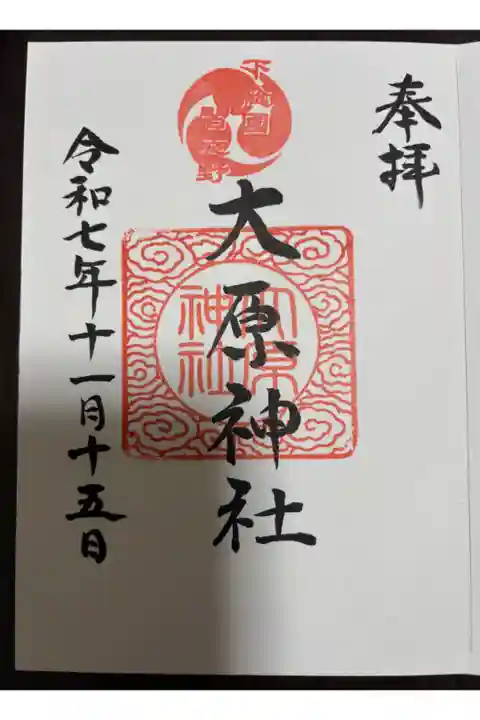 奉拝
下総国
習志野
大原神社
大原神社
令和七年十一月十五日